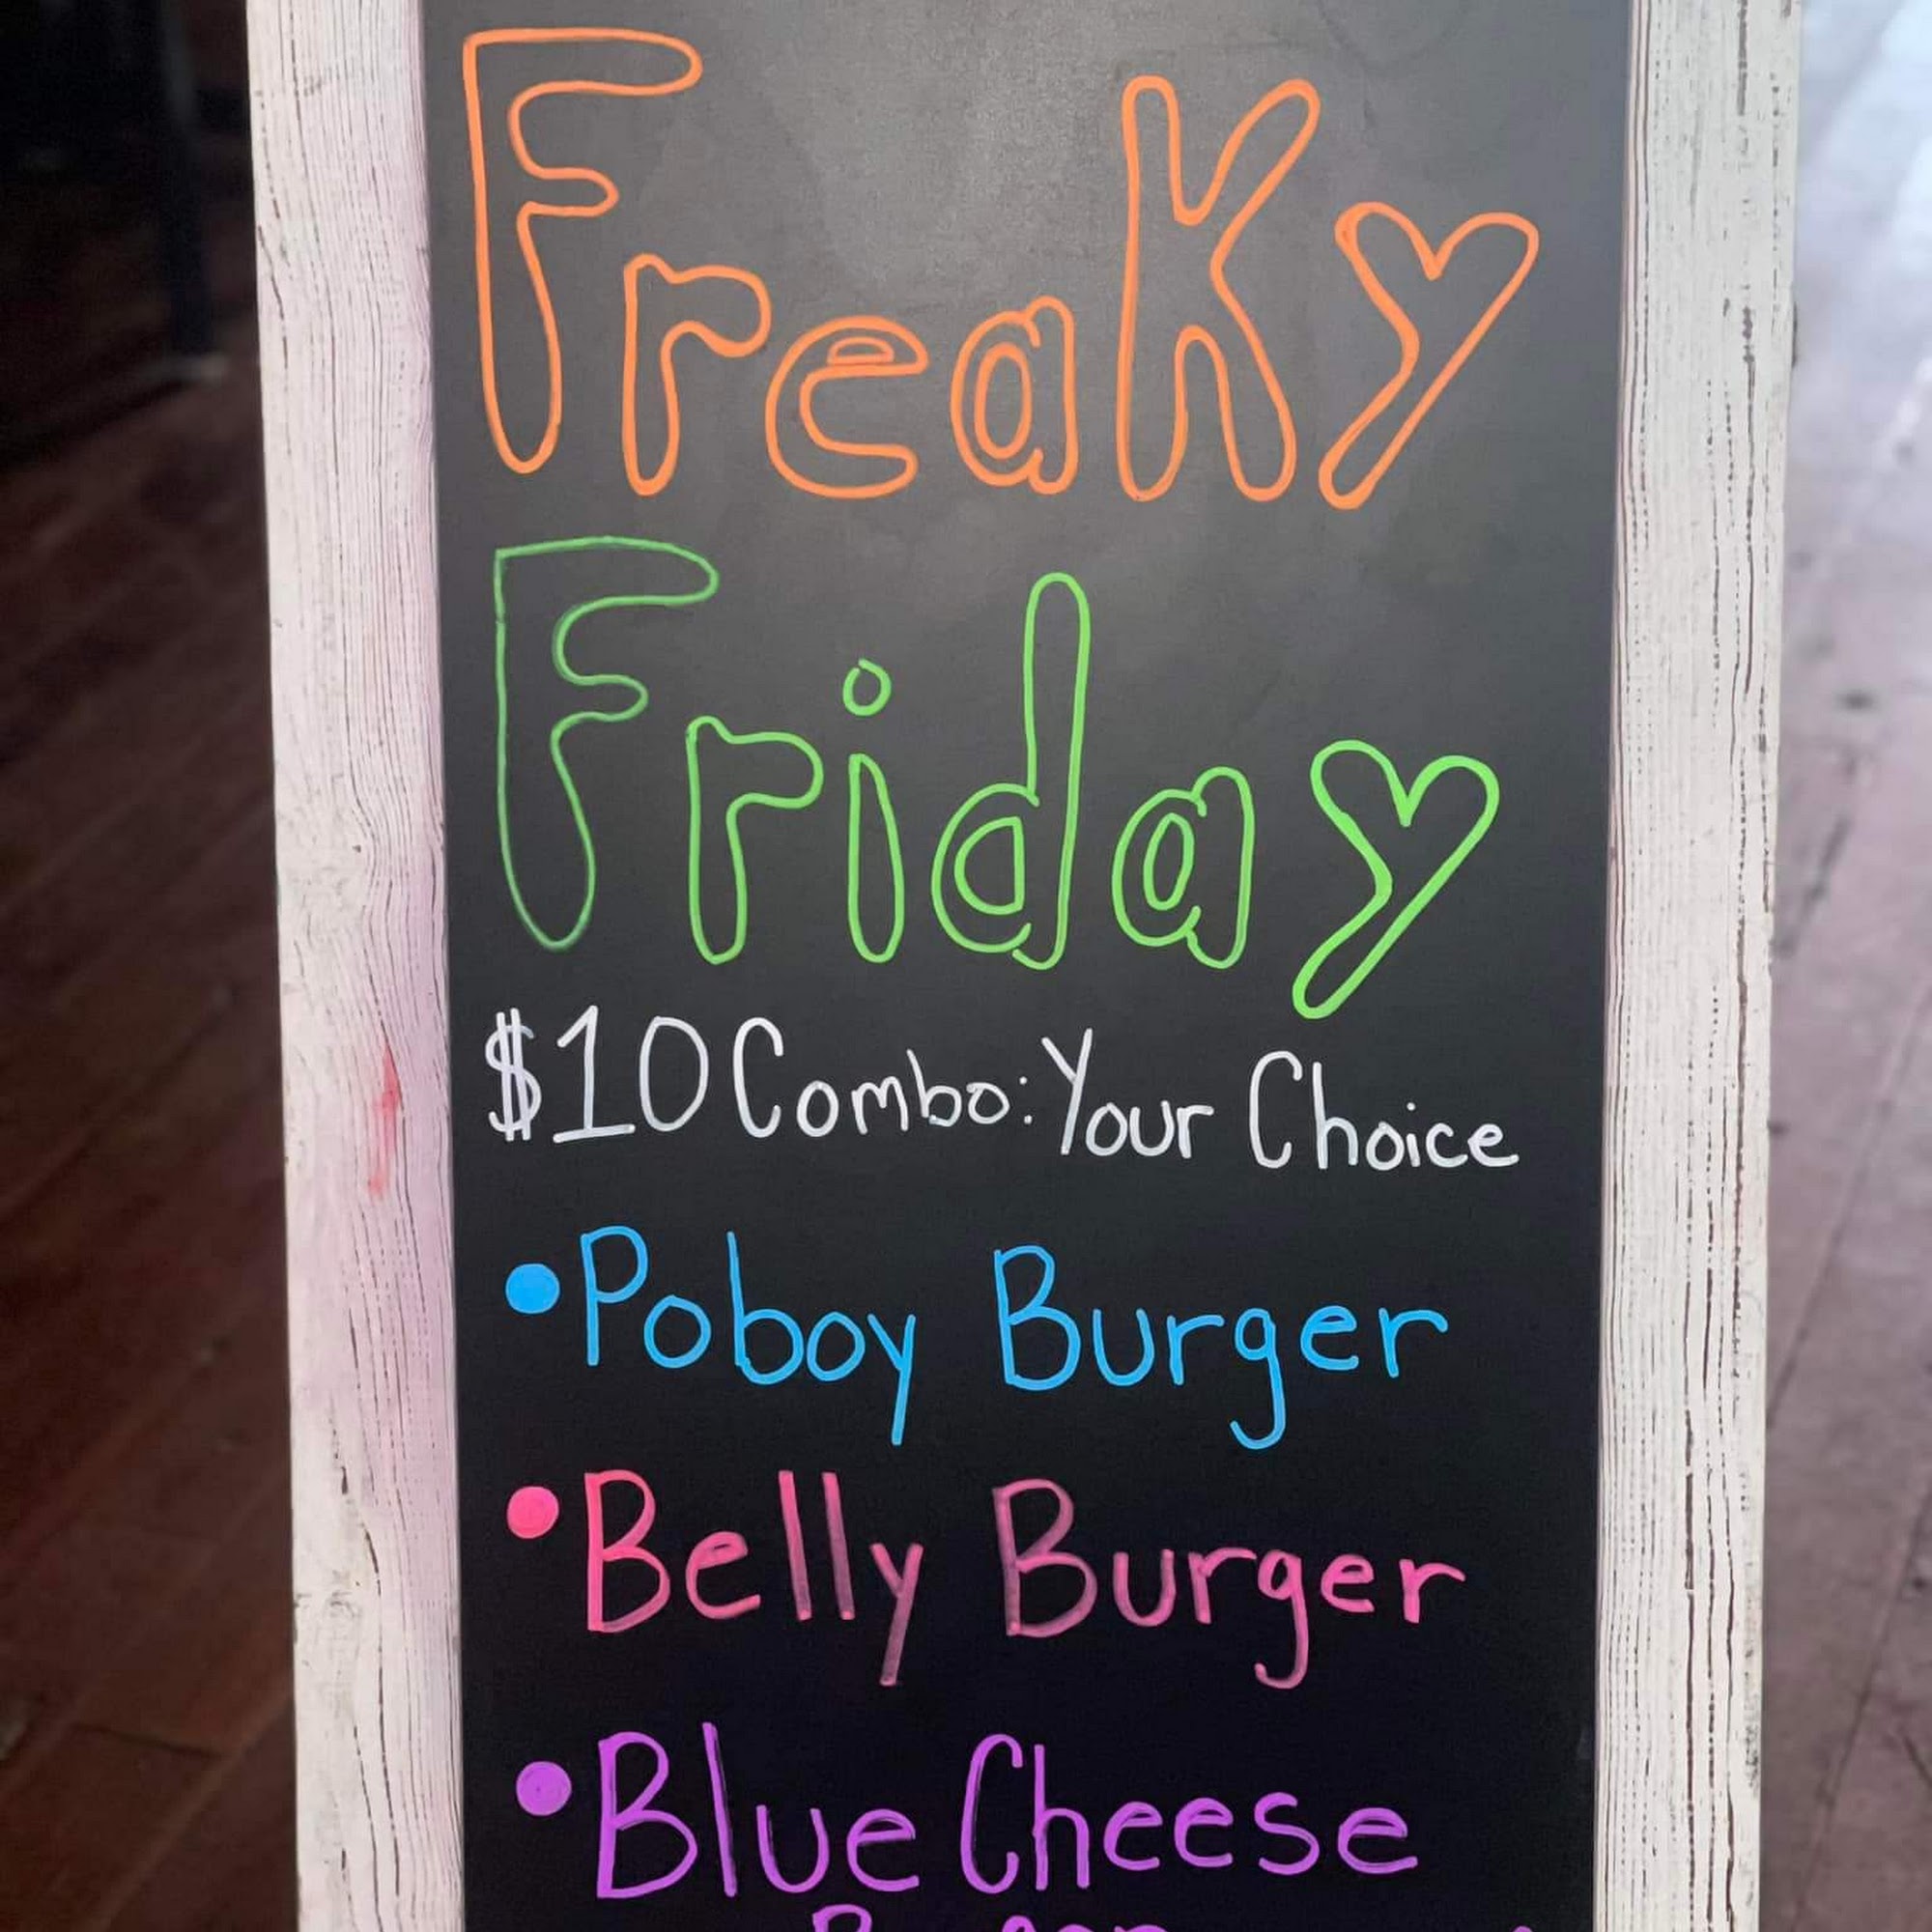 Freaky
Friday
$10 Combo: Your Choice
• Poboy Burger
• Belly Burger
• Blue Cheese